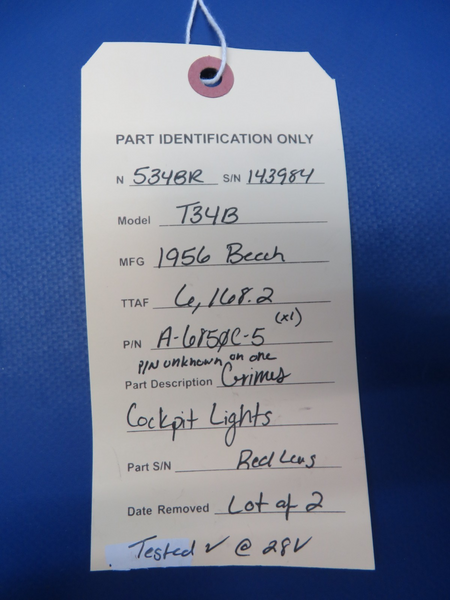 PART IDENTIFICATION ONLY
N 534BR S/N 143984
Model T34B
MFG 1956 Beech
TTAF 6,168.2
P/N A-6850C-5 (x1)
P/N unknown on one
Part Description Grimes
Cockpit Lights
Part S/N Red Lens
Date Removed Lot of 2
Tested ✓ @ 28V